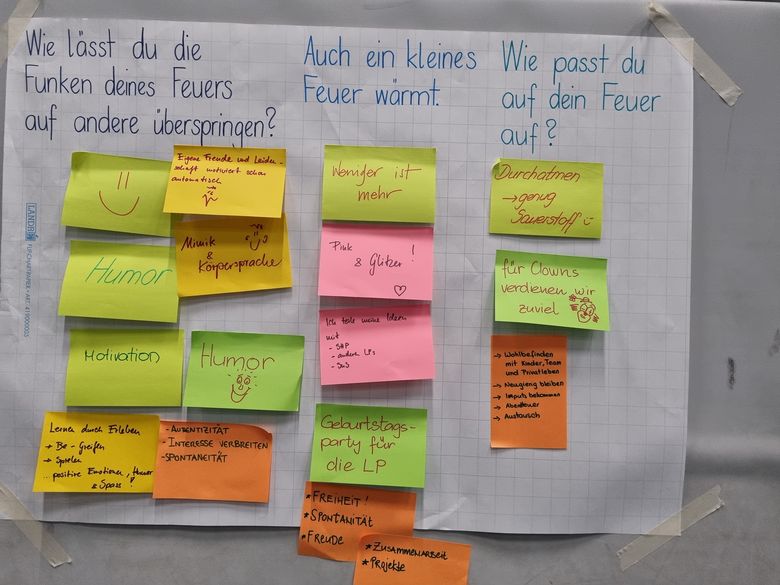 Wie lässt du die
Funken deines Feuers
auf andere überspringen?
Eigene Freude und Leiden-
schaft motiviert schon
automatisch
Humor
Mimik
&
Körpersprache
Motivation
Humor
Lernen durch Erleben
→ Be-Greifen
→ Spielen
...positive Emotionen, Humor
& Spass!
- AUTENTIZITÄT
- INTERESSE VERBREITEN
- SPONTANEITÄT
Auch ein kleines
Feuer wärmt.
Weniger ist
mehr
Pink
& Glitzer!
Ich teile meine Ideen
mit
- SHP
- andern LPs
- SuS
Geburtstags-
party für
die LP
* FREIHEIT!
* SPONTANITÄT
* FREUDE
* ZUSAMMENARBEIT
* PROJEKTE
Wie passt du
auf dein Feuer
auf?
Durchatmen
→ genug
Sauerstoff
für Clowns
verdienen wir
zuviel
→ Wohlbefinden
mit Kinder, Team
und Privatleben
→ Neugierig bleiben
→ Impuls bekommen
→ Abenteuer
→ Austausch